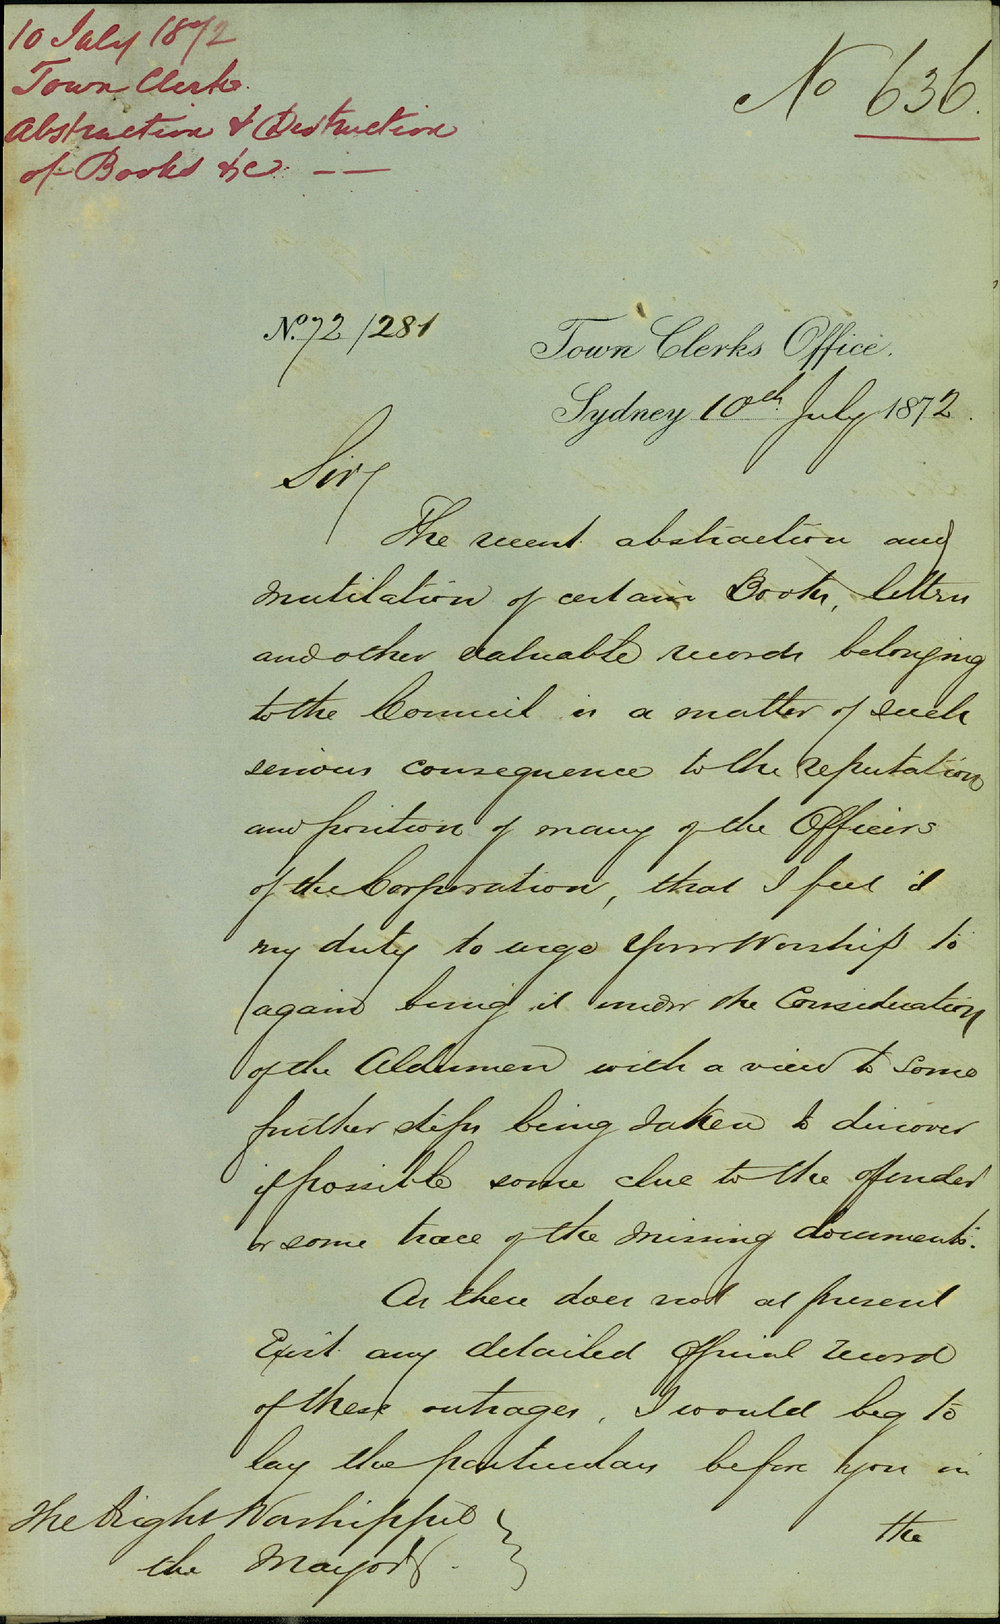 10 July 1872
Town Clerk
Abstraction & Destruction
of Books &c. — —
No 636.
No. 72/281
Town Clerks Office.
Sydney 10th July 1872.
Sir,
The recent abstraction and
mutilation of certain Books, letters
and other valuable records belonging
to the Council is a matter of such
serious consequence to the reputation
and position of many of the Officers
of the Corporation, that I feel it
my duty to urge Your Worship to
again bring it under the Consideration
of the Aldermen with a view to some
further steps being taken to discover
if possible some clue to the offender
or some trace of the missing documents.
As there does not at present
Exist any detailed official record
of these outrages, I would beg to
lay the particulars before you in
the
The Right Worshipful
the Mayor